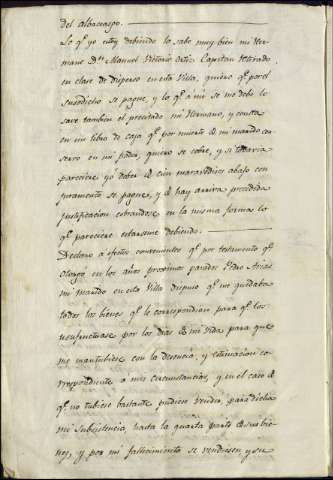 del Albaceazgo.
Lo q.e yo estoy debiendo lo sabe muy bien mi Her=
mano D.n Manuel Victorio Ortiz Capitan Retirado
en clase de disperso en esta Villa, quiero q.e por el
susodicho se pague, y lo q.e a mi se me debe lo
save tambien el precitado mi Hermano, y consta
en un libro de caja q.e por muerte de mi marido con=
serbo en mi poder, quiero se cobre, y si todavia
pareciere yo deber de cien maravedises abajo con
juramento se pague, y de hay arriva precedida
justificacion cobrandose en la misma forma lo
q.e pareciere estarseme debiendo.
Declaro a efectos convenientes q.e por testamento q.e
otorgó en los años proximos pasados Pedro Arias
mi marido en esta Villa dispuso q.e me quedaba
todos los bienes q.e le correspondian para q.e los
usufructuase por los dias de mi vida para que
me mantubiese con la decencia, y estimacion co=
rrespondiente a mis circunstancias, y en el caso de
q.e no tubiese bastante pudiese vender, para dicha
mi subsistencia, hasta la quarta parte de sus bie=
nes, y por mi fallecimiento se vendiesen, y su